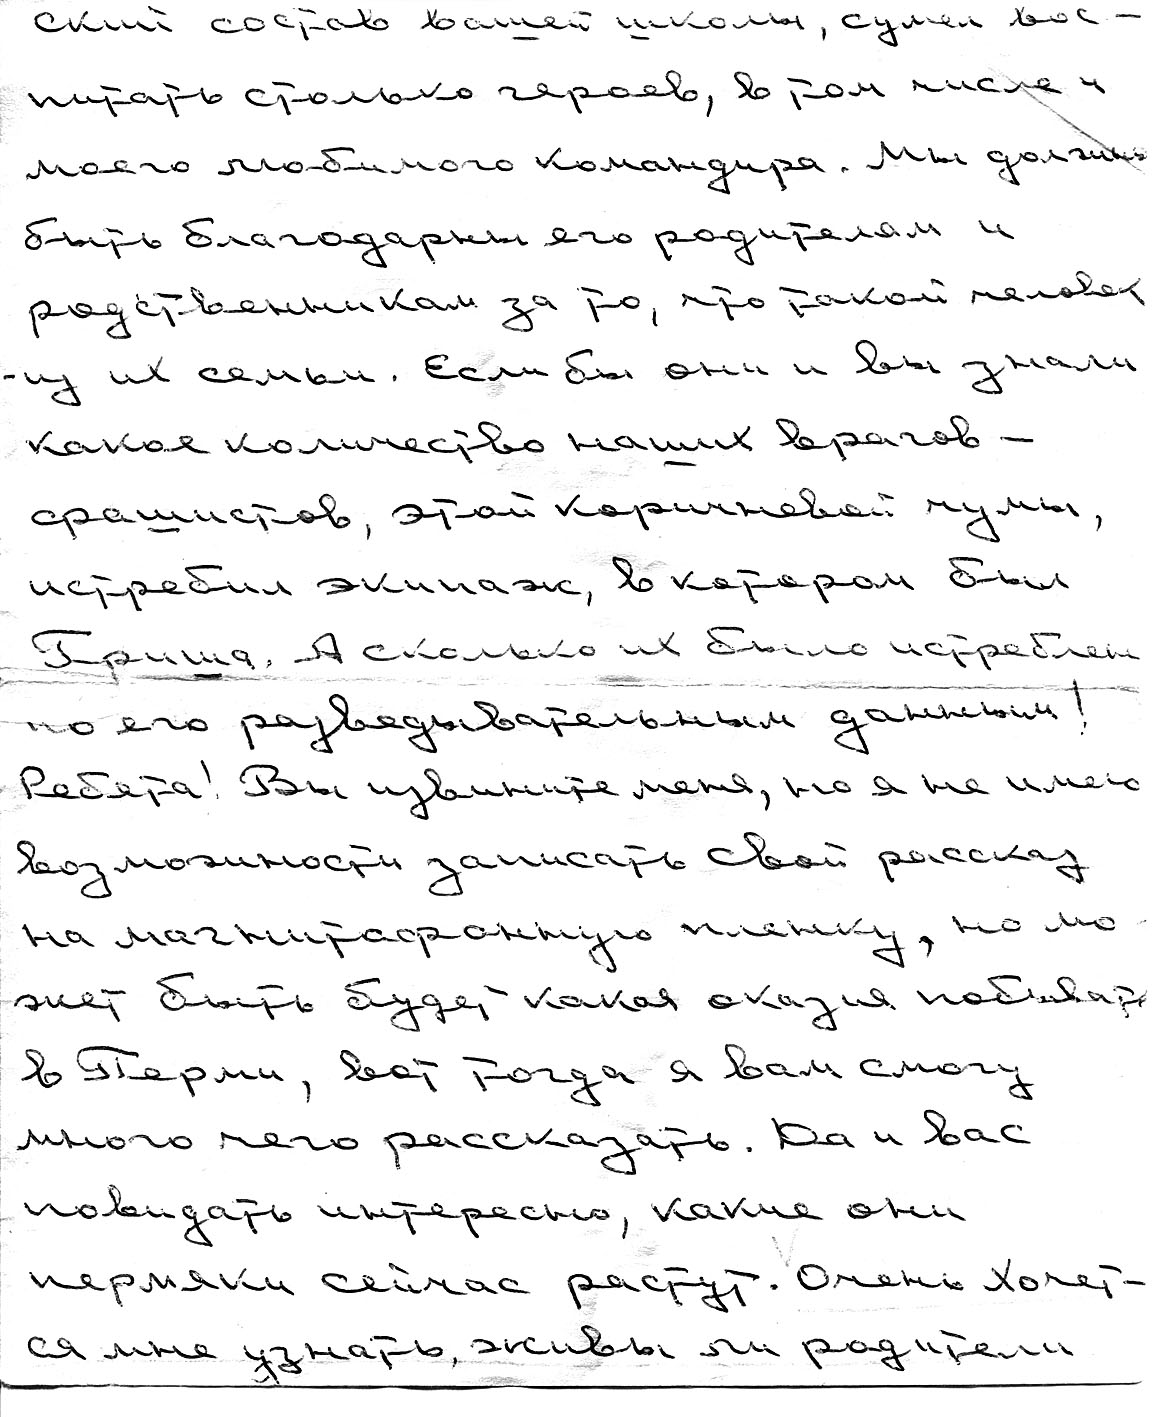 ский состав вашей школы, сумел вос-
питать столько героев, в том числе и
моего любимого командира. Мы должны
быть благодарны его родителям и
родственникам за то, что такой человек
-из их семьи. Если бы они и вы знали
какое количество наших врагов -
фашистов, этой коричневой чумы,
истребил экипаж, в котором был
Гриша. А сколько их было истреблен
по его разведывательным данным!
Ребята! Вы извините меня, но я не имею
возможности записать свой рассказ
на магнитофонную пленку, но мо
жет быть будет какая оказия побывать
в Перми, вот тогда я вам смогу
много чего рассказать. Да и вас
повидать интересно, какие они
пермяки сейчас растут. Очень хочет-
ся мне узнать, живы ли родители